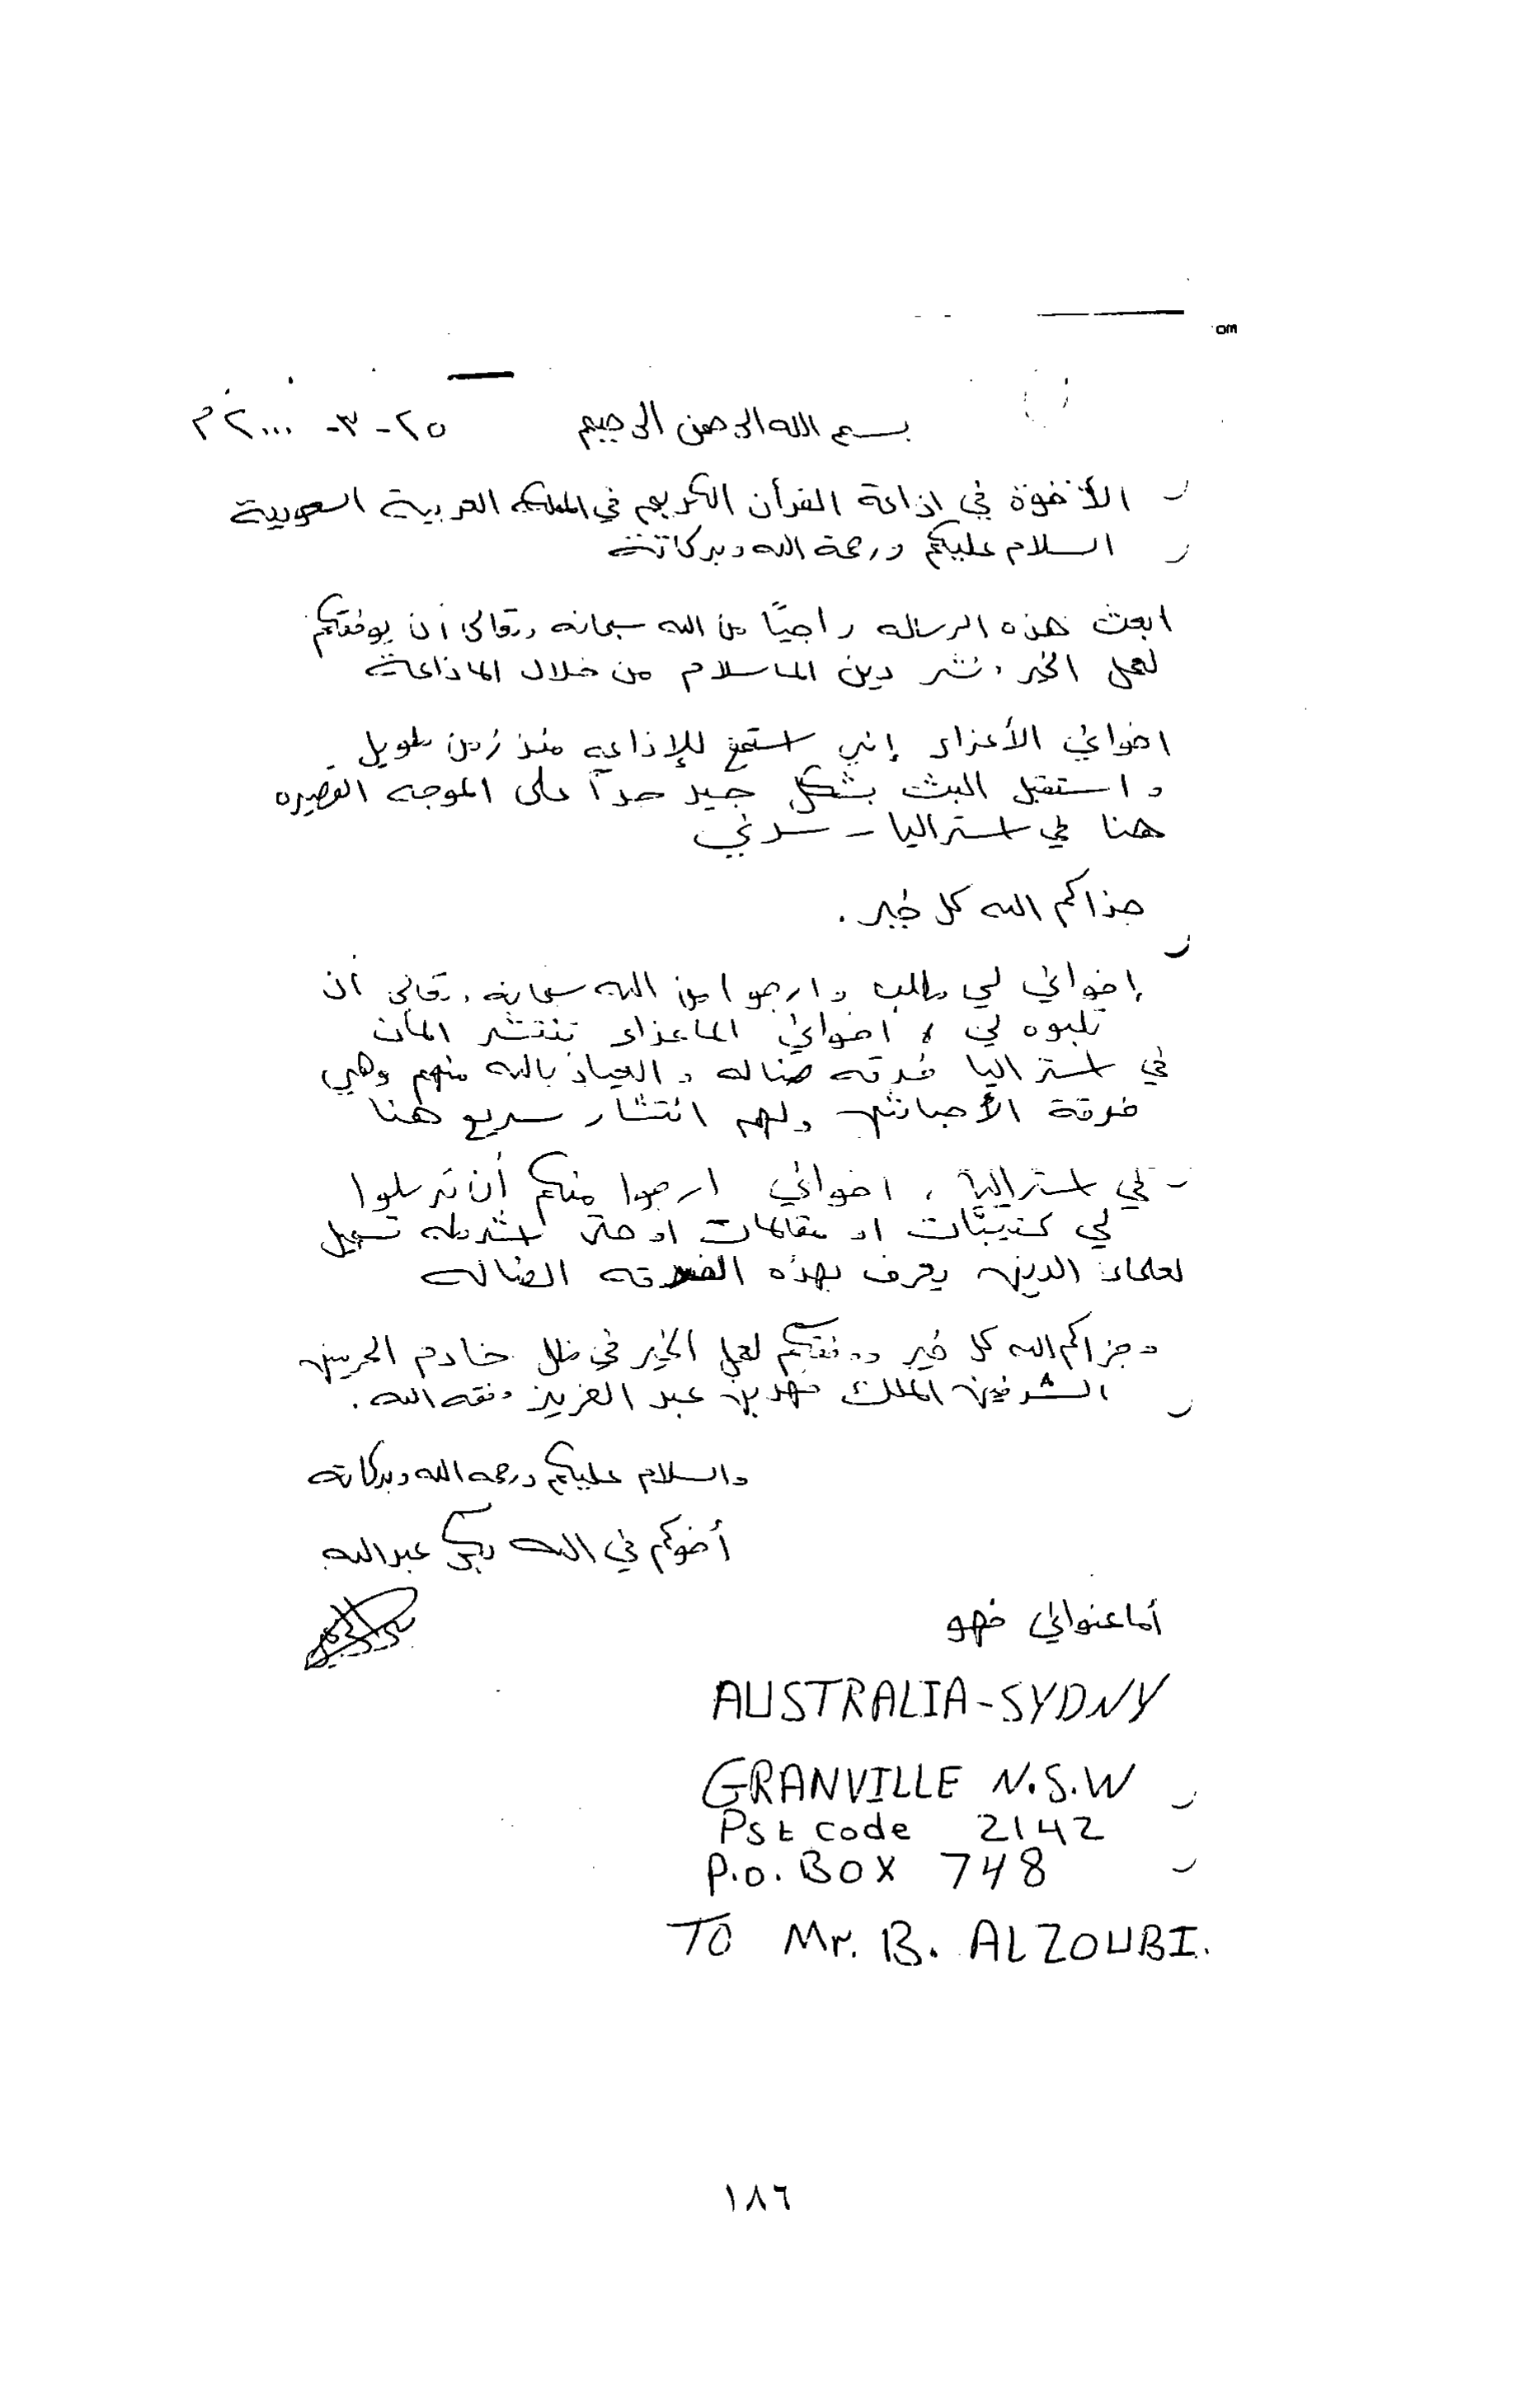 om
بسم الله الرحمن الرحيم ٢٥-٣-٢٠٠٠م
الأخوة في اذاعة القرأن الكريم في المملكه العربية السعودية
السلام عليكم ورحمة الله وبركاتة
ابعث هذه الرساله راجيًا من الله سبحانه وتعالى أن يوفقكم
لعمل الخير ونشر دين الاسلام من خلال الاذاعة
اخواني الأعزاء إني استمع للإذاعه منذ زمن طويل
و استقبل البث بشكل جيد جداً على الموجه القصيره
هنا في استراليا - سدني
جزاكم الله كل خير .
إخواني لي طلب وارجوا من الله سبحانه وتعالى أن
تلبوه لي ، اخواني الاعزاء تنتشر الأن
في استراليا فرقه ضاله والعياذ بالله منهم وهي
فرقة الأحباش ولهم انتشار سريع هنا
في استراليا ، اخواني ارجوا منكم أن ترسلوا
لي كتيبّات او مقالات او حتى اشرطه تسجيل
لعلماء الدين يعرف بهذه الفرقه الضاله
وجزاكم الله كل خير ووفقكم لعمل الخير في ظل خادم الحرمين
الشرفين الملك فهد بن عبد العزيز وفقه الله .
والسلام عليكم ورحمه الله وبركاته
أخوكم في الله بكر عبدالله
أما عنواني فهو
AUSTRALIA-SYDNY
GRANVILLE N.S.W
Pst code 2142
P.O. BOX 748
TO Mr. B. ALZOUBI.
١٨٦